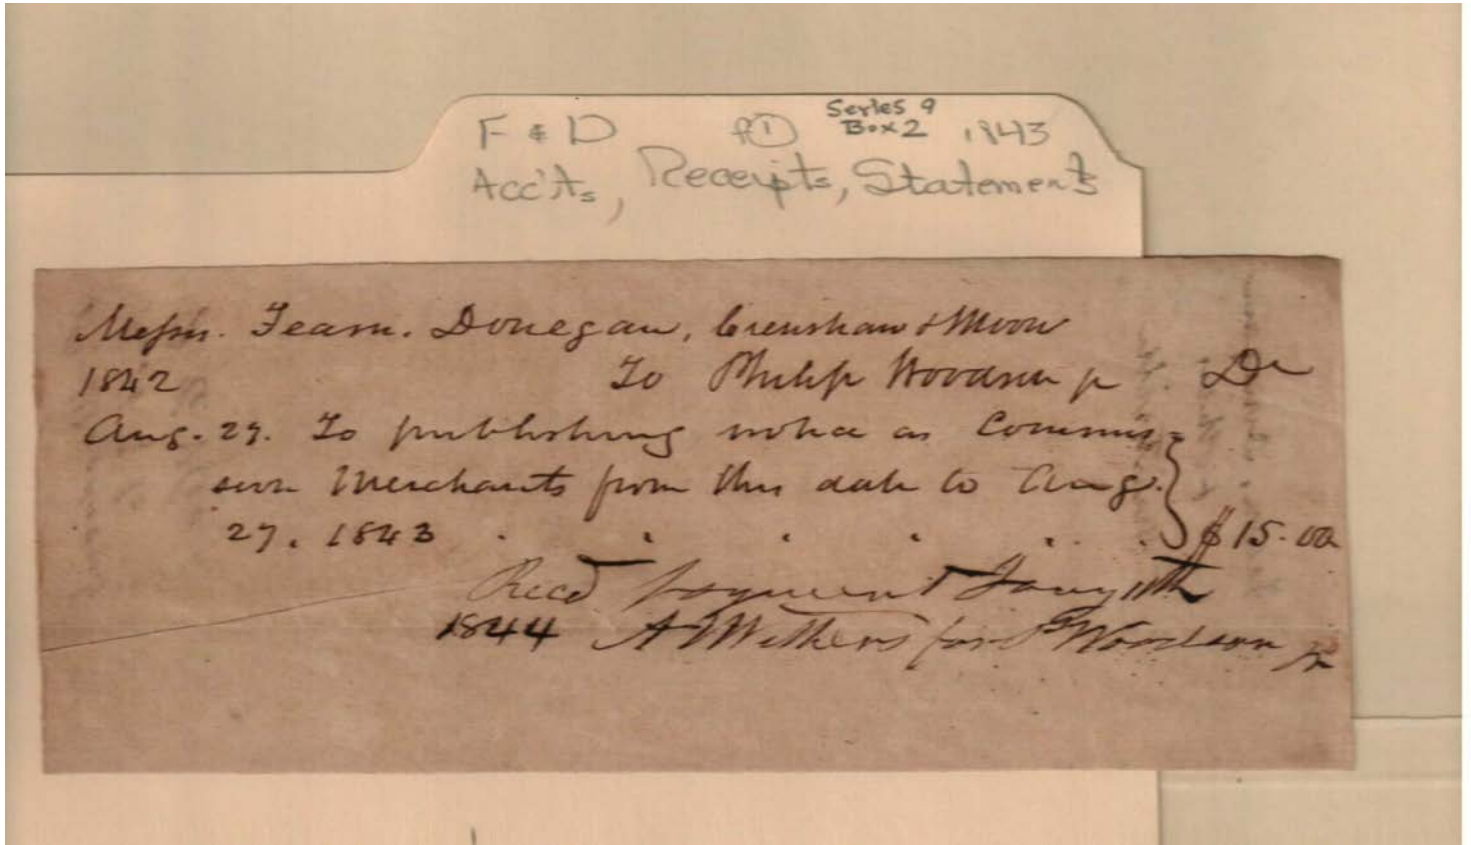 F & D Series 9 1843
Box 2
Acc'ts, Receipts, Statements
Messrs. Fearn. Donegan, Crenshaw & Moore
1842 To Philip Woodson jr Dr
Aug. 27. To publishing notice as Commis-
sion Merchants from this date to Aug.
27. 1843 . . . . . . . $15.00
Recd payment
1844 A Withers for P Woodson jr